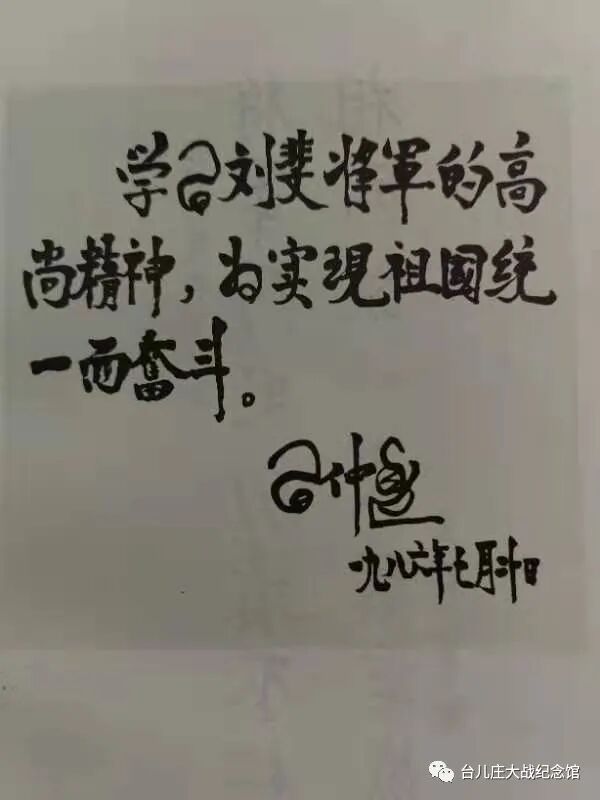 学习刘斐将軍的高
尚精神，为实現祖國统
一而奋斗。
习仲勋
一九八六年七月二十日
台儿庄大战纪念馆